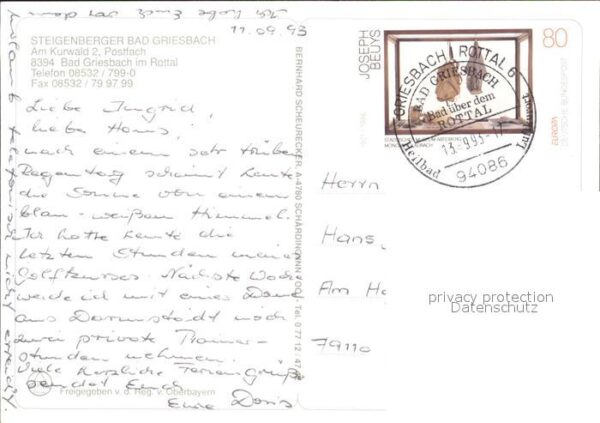 11.09.93
STEIGENBERGER BAD GRIESBACH
Am Kurwald 2, Postfach
8394 Bad Griesbach im Rottal
Telefon 08532 / 799-0
Fax 08532 / 79 97 99
Liebe Ingrid,
lieber Hans,
nach einem sehr trüben
Regentag scheint heute
die Sonne von einem
blau-weißen Himmel.
Ich hatte heute die
letzten Stunden meines
Golfkurses. Nächste Woche
werde ich mit einer Dame
aus Darmstadt noch
zwei private Trainer-
stunden nehmen.
Viele herzliche Feriengrüße
sendet Euch
Eure Doris
Freigegeben v. d. Reg. v. Oberbayern
BERNHARD SCHEURECKER, A-4780 SCHÄRDING/INN
JOSEPH
BEUYS
80
EUROPA
DEUTSCHE BUNDESPOST
GRIESBACH i ROTTAL 6
BAD GRIESBACH
Bad über dem
ROTTAL
13.-9.93.-17
Heilbad
Luftkurort
94086
Herrn
Hans
Am
79110
privacy protection
Datenschutz